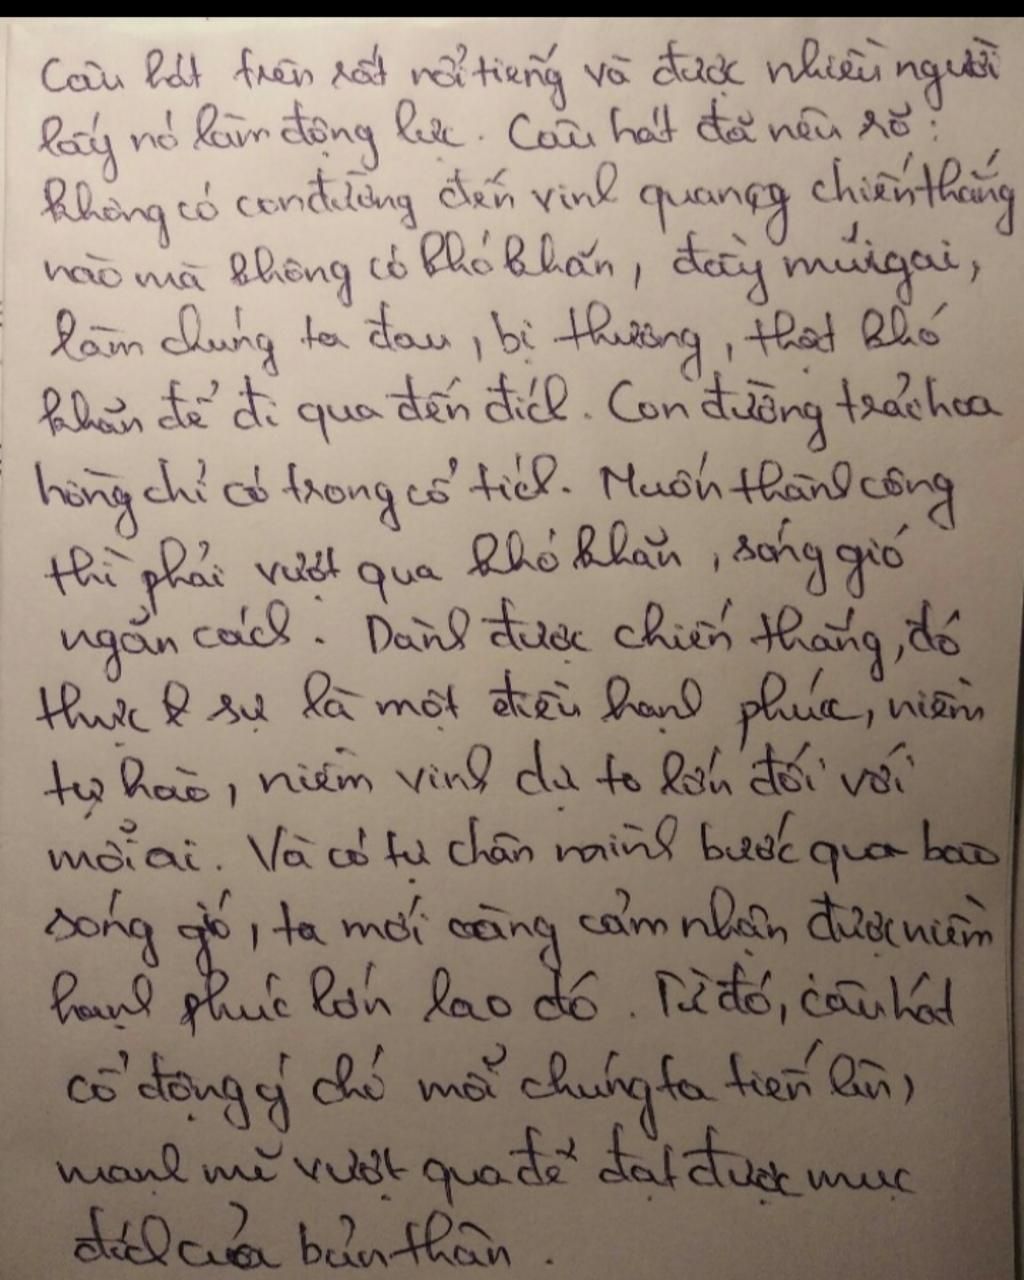 Câu hát trên rất nổi tiếng và được nhiều người
lấy nó làm động lực. Câu hát đã nêu rõ:
không có con đường đến vinh quang chiến thắng
nào mà không có khó khăn, đầy mũi gai,
làm chúng ta đau, bị thương, thật khó
khăn để đi qua đến đích. Con đường trải hoa
hồng chỉ có trong cổ tích. Muốn thành công
thì phải vượt qua khó khăn, sóng gió
ngăn cách. Dành được chiến thắng, đó
thực sự là một điều hạnh phúc, niềm
tự hào, niềm vinh dự to lớn đối với
mỗi ai. Và có tự chân mình bước qua bao
sóng gió, ta mới càng cảm nhận được niềm
hạnh phúc lớn lao đó. Từ đó, câu hát
cổ động ý chí mỗi chúng ta tiến lên,
mạnh mẽ vượt qua để đạt được mục
đích của bản thân.